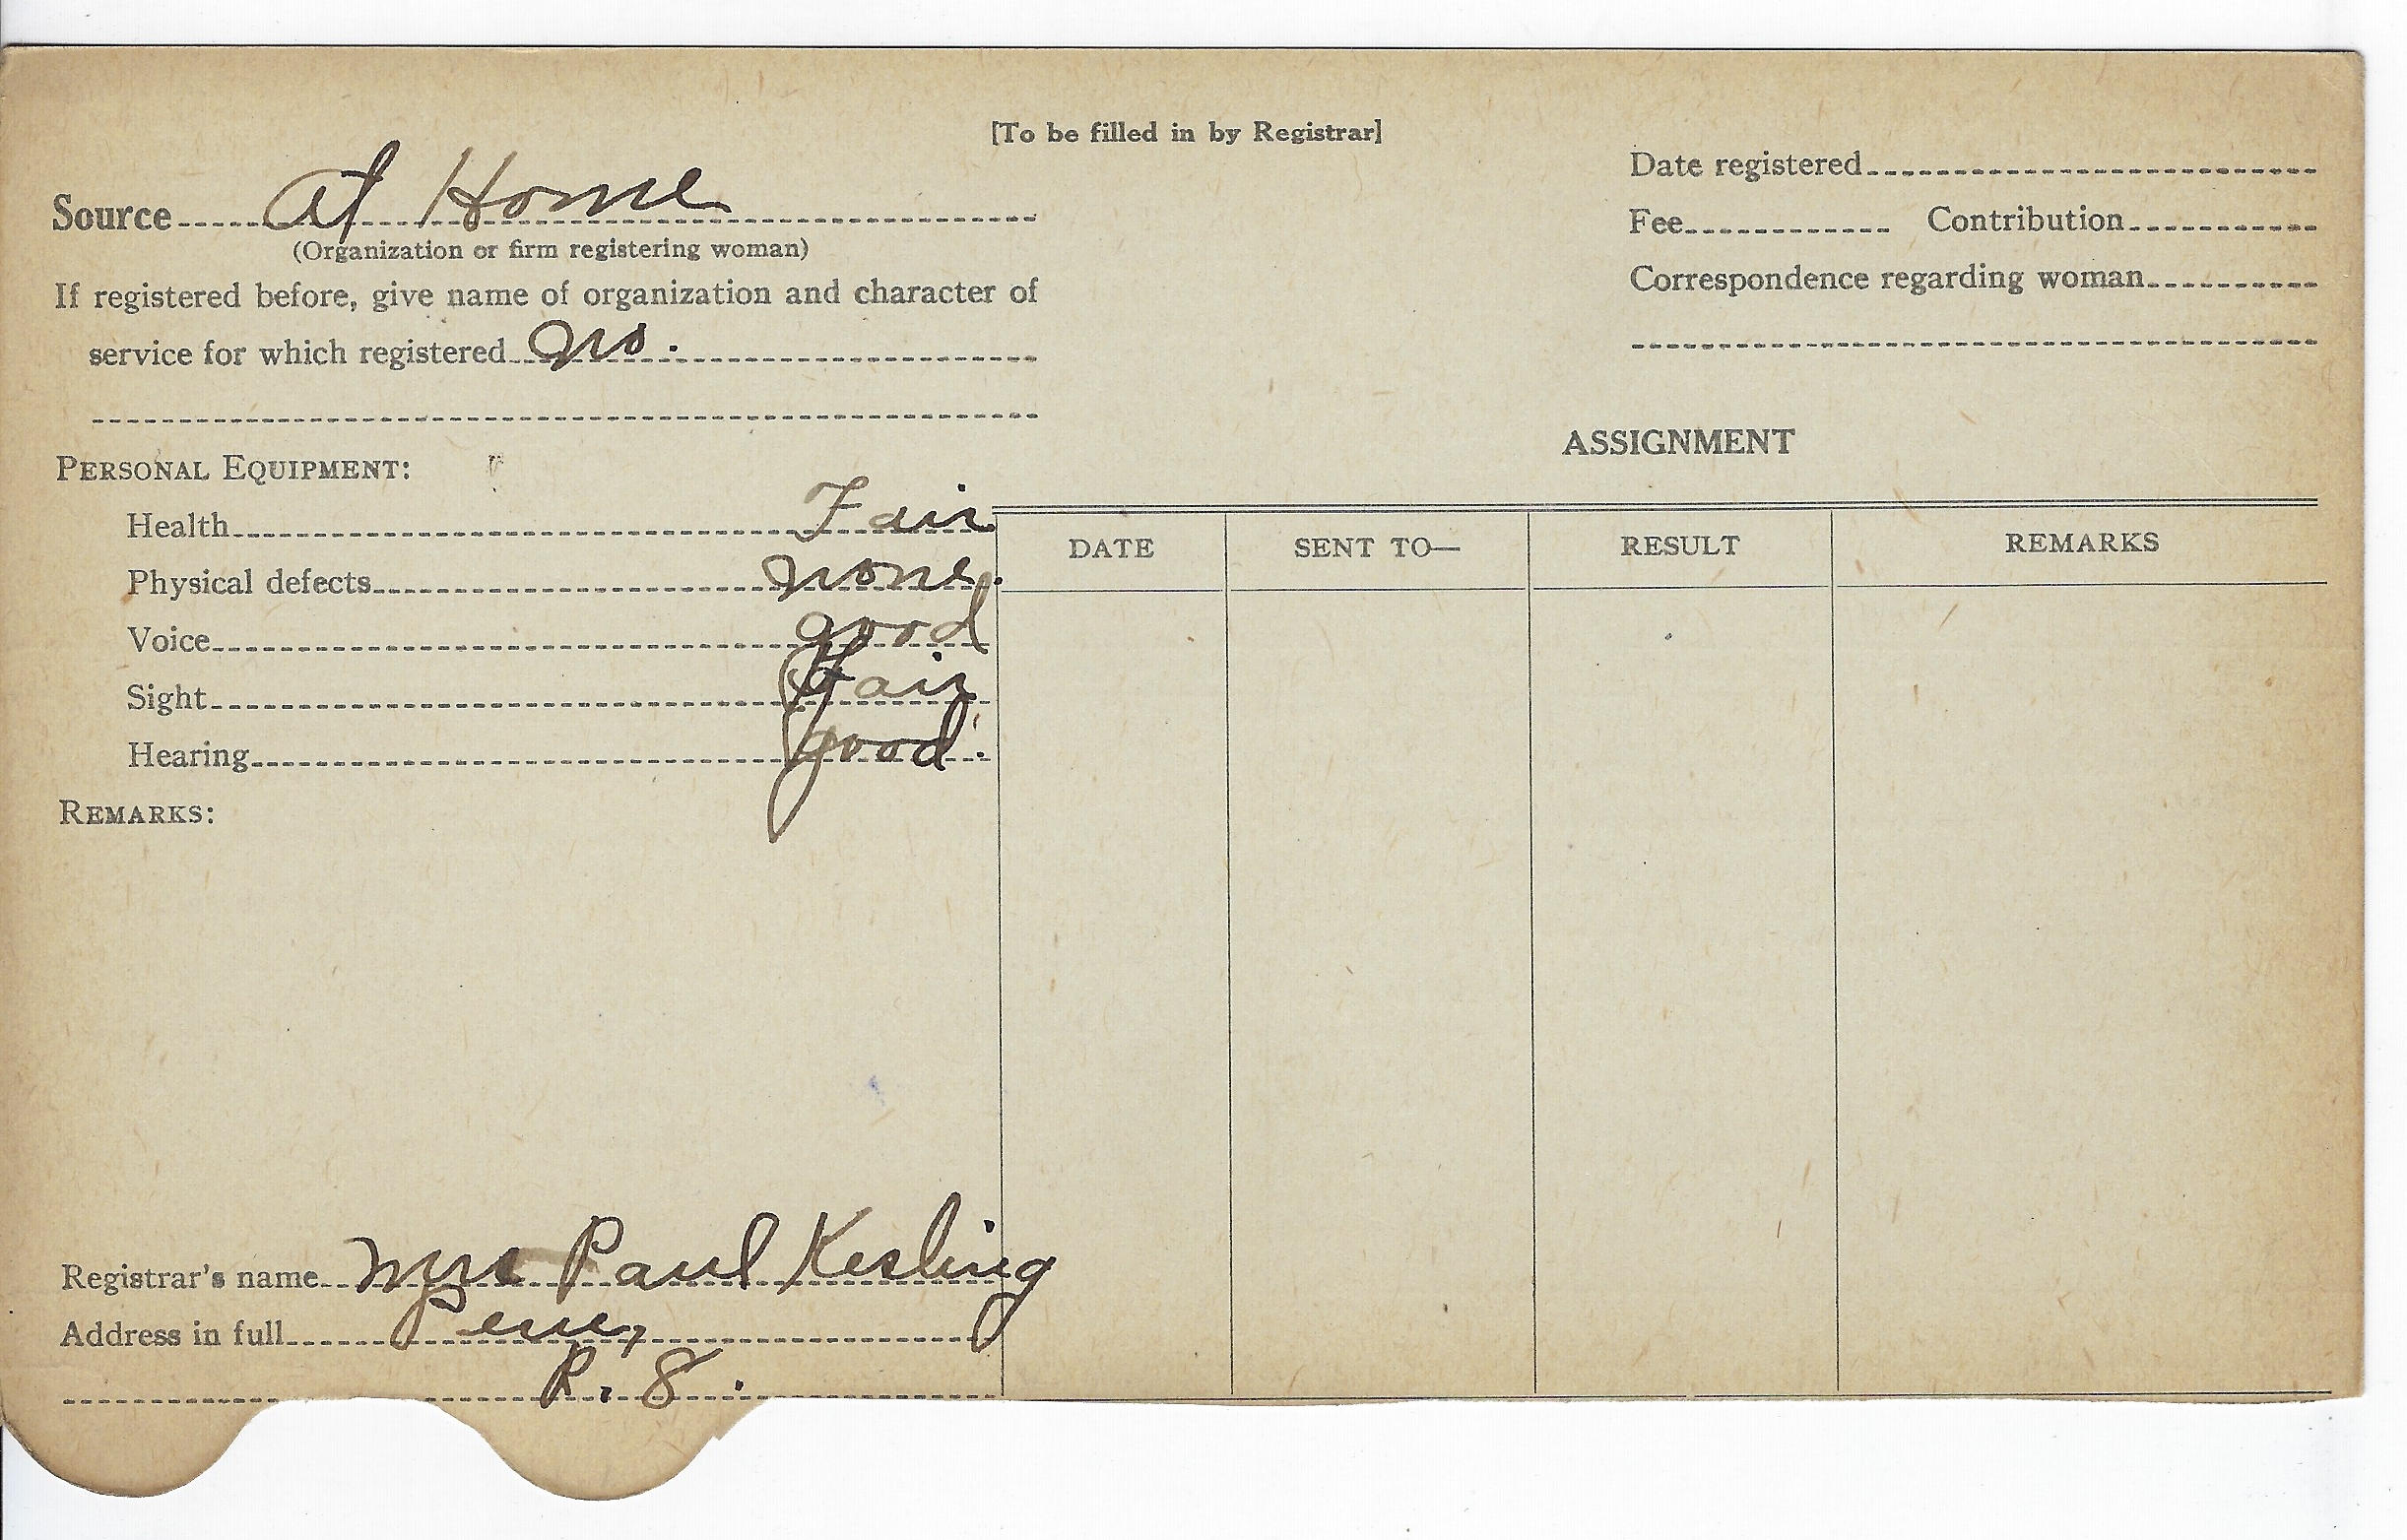 [To be filled in by Registrar]
Source At Home
(Organization or firm registering woman)
If registered before, give name of organization and character of
service for which registered no.
PERSONAL EQUIPMENT:
Health Fair
Physical defects none.
Voice good
Sight Fair
Hearing good.
REMARKS:
Registrar's name Mrs Paul Kesling
Address in full Peru,
R. 8.
Date registered
Fee Contribution
Correspondence regarding woman
ASSIGNMENT
DATE SENT TO— RESULT REMARKS